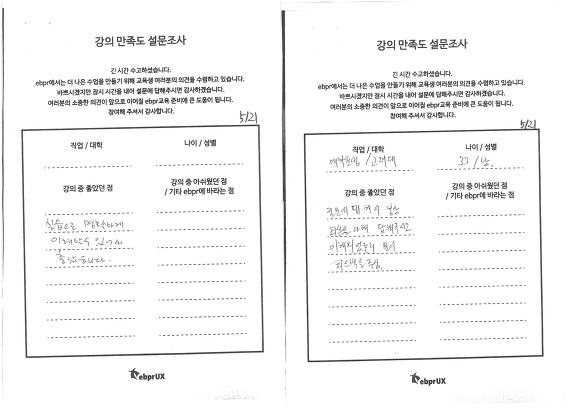 강의 만족도 설문조사
긴 시간 수고하셨습니다.
ebpr에서는 더 나은 수업을 만들기 위해 교육생 여러분의 의견을 수렴하고 있습니다.
바쁘시겠지만 잠시 시간을 내어 설문에 답해주시면 감사하겠습니다.
여러분의 소중한 의견이 앞으로 이어질 ebpr교육 준비에 큰 도움이 됩니다.
참여해 주셔서 감사합니다.
5/21
직업 / 대학
나이 / 성별
강의 중 좋았던 점
강의 중 아쉬웠던 점
/ 기타 ebpr에 바라는 점
실습으로 명확하게
이해할 수 있어서
좋았습니다.
ebprUX
강의 만족도 설문조사
긴 시간 수고하셨습니다.
ebpr에서는 더 나은 수업을 만들기 위해 교육생 여러분의 의견을 수렴하고 있습니다.
바쁘시겠지만 잠시 시간을 내어 설문에 답해주시면 감사하겠습니다.
여러분의 소중한 의견이 앞으로 이어질 ebpr교육 준비에 큰 도움이 됩니다.
참여해 주셔서 감사합니다.
5/21
직업 / 대학
나이 / 성별
/ 고려대
33 / 남.
강의 중 좋았던 점
강의 중 아쉬웠던 점
/ 기타 ebpr에 바라는 점
질문에 대해서 항상
답해주시고
피드백을 주심.
ebprUX